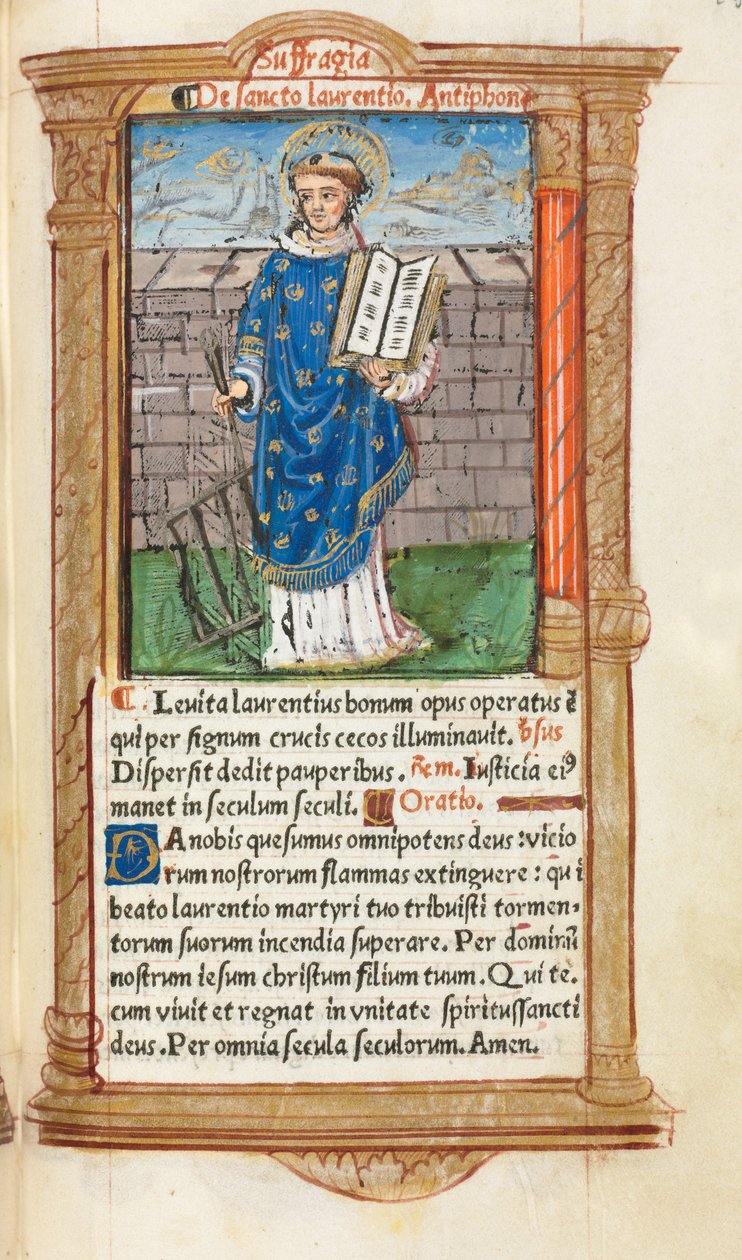 Suffragia
De sancto laurentio. Antiphona
Leuita laurentius bonum opus operatus ē
qui per signum crucis cecos illuminauit. v̄sus
Dispersit dedit pauperibus. R̄em. Iusticia eiꝰ
manet in seculum seculi. Oratio.
DA nobis quesumus omnipotens deus : vicio
rum nostrorum flammas extinguere : qui
beato laurentio martyri tuo tribuisti tormen-
torum suorum incendia superare. Per dominū
nostrum iesum christum filium tuum. Qui te.
cum viuit et regnat in vnitate spiritussancti
deus. Per omnia secula seculorum. Amen.